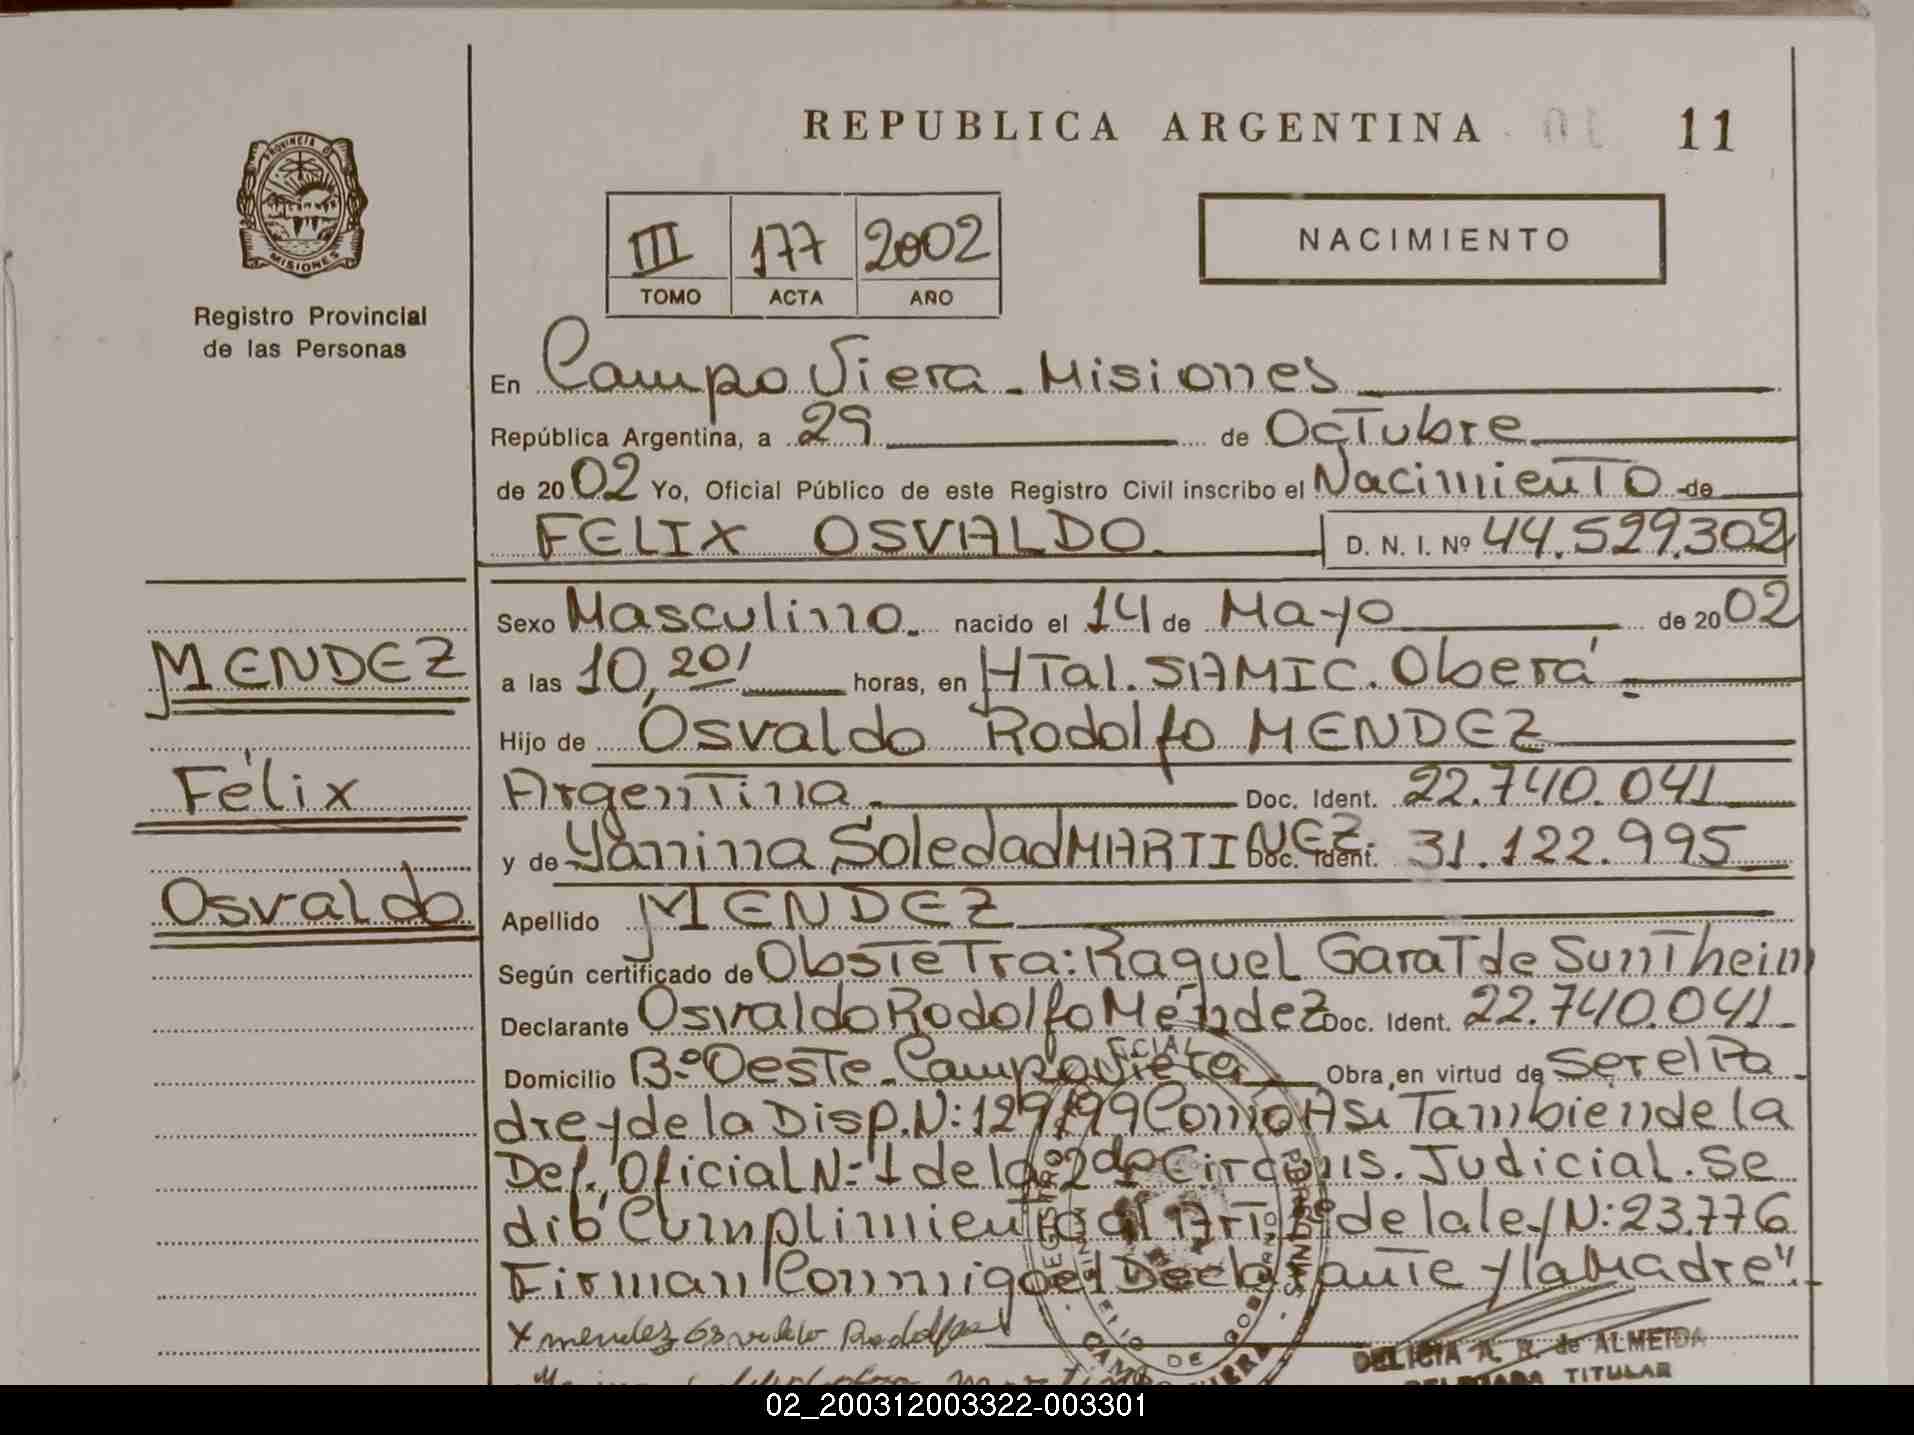 REPUBLICA ARGENTINA
11
PROVINCIA DE
MISIONES
Registro Provincial
de las Personas
III 177 2002
TOMO ACTA AÑO
NACIMIENTO
En Campo Viera - Misiones
República Argentina, a 29 de Octubre
de 2002 Yo, Oficial Público de este Registro Civil inscribo el Nacimiento de
FELIX OSVALDO D. N. I. Nº 44.529.302
Sexo Masculino. nacido el 14 de Mayo de 2002
MENDEZ
a las 10,20' horas, en HTal. SAMIC. Oberá
Hijo de Osvaldo Rodolfo MENDEZ
Félix
Argentina Doc. Ident. 22.740.041
y de Yanina Soledad MARTINEZ. Doc. Ident. 31.122.995
Osvaldo
Apellido MENDEZ
Según certificado de Obstetra: Raquel Garat de Suntheim
Declarante Osvaldo Rodolfo Méndez Doc. Ident. 22.740.041
Domicilio Bº Oeste - Campo Viera Obra en virtud de ser el Pa
dre y de la Disp. N: 129/99 Como Asi Tambien de la
Def. Oficial N: 1 de la 2da Circuns. Judicial. Se
dió Cumplimiento al Art. de la ley N: 23.776
Firman Conmigo el Declarante y la Madre".
x mendez Osvaldo Rodolfo
DELICIA A. R. de ALMEIDA
TITULAR
02_200312003322-003301